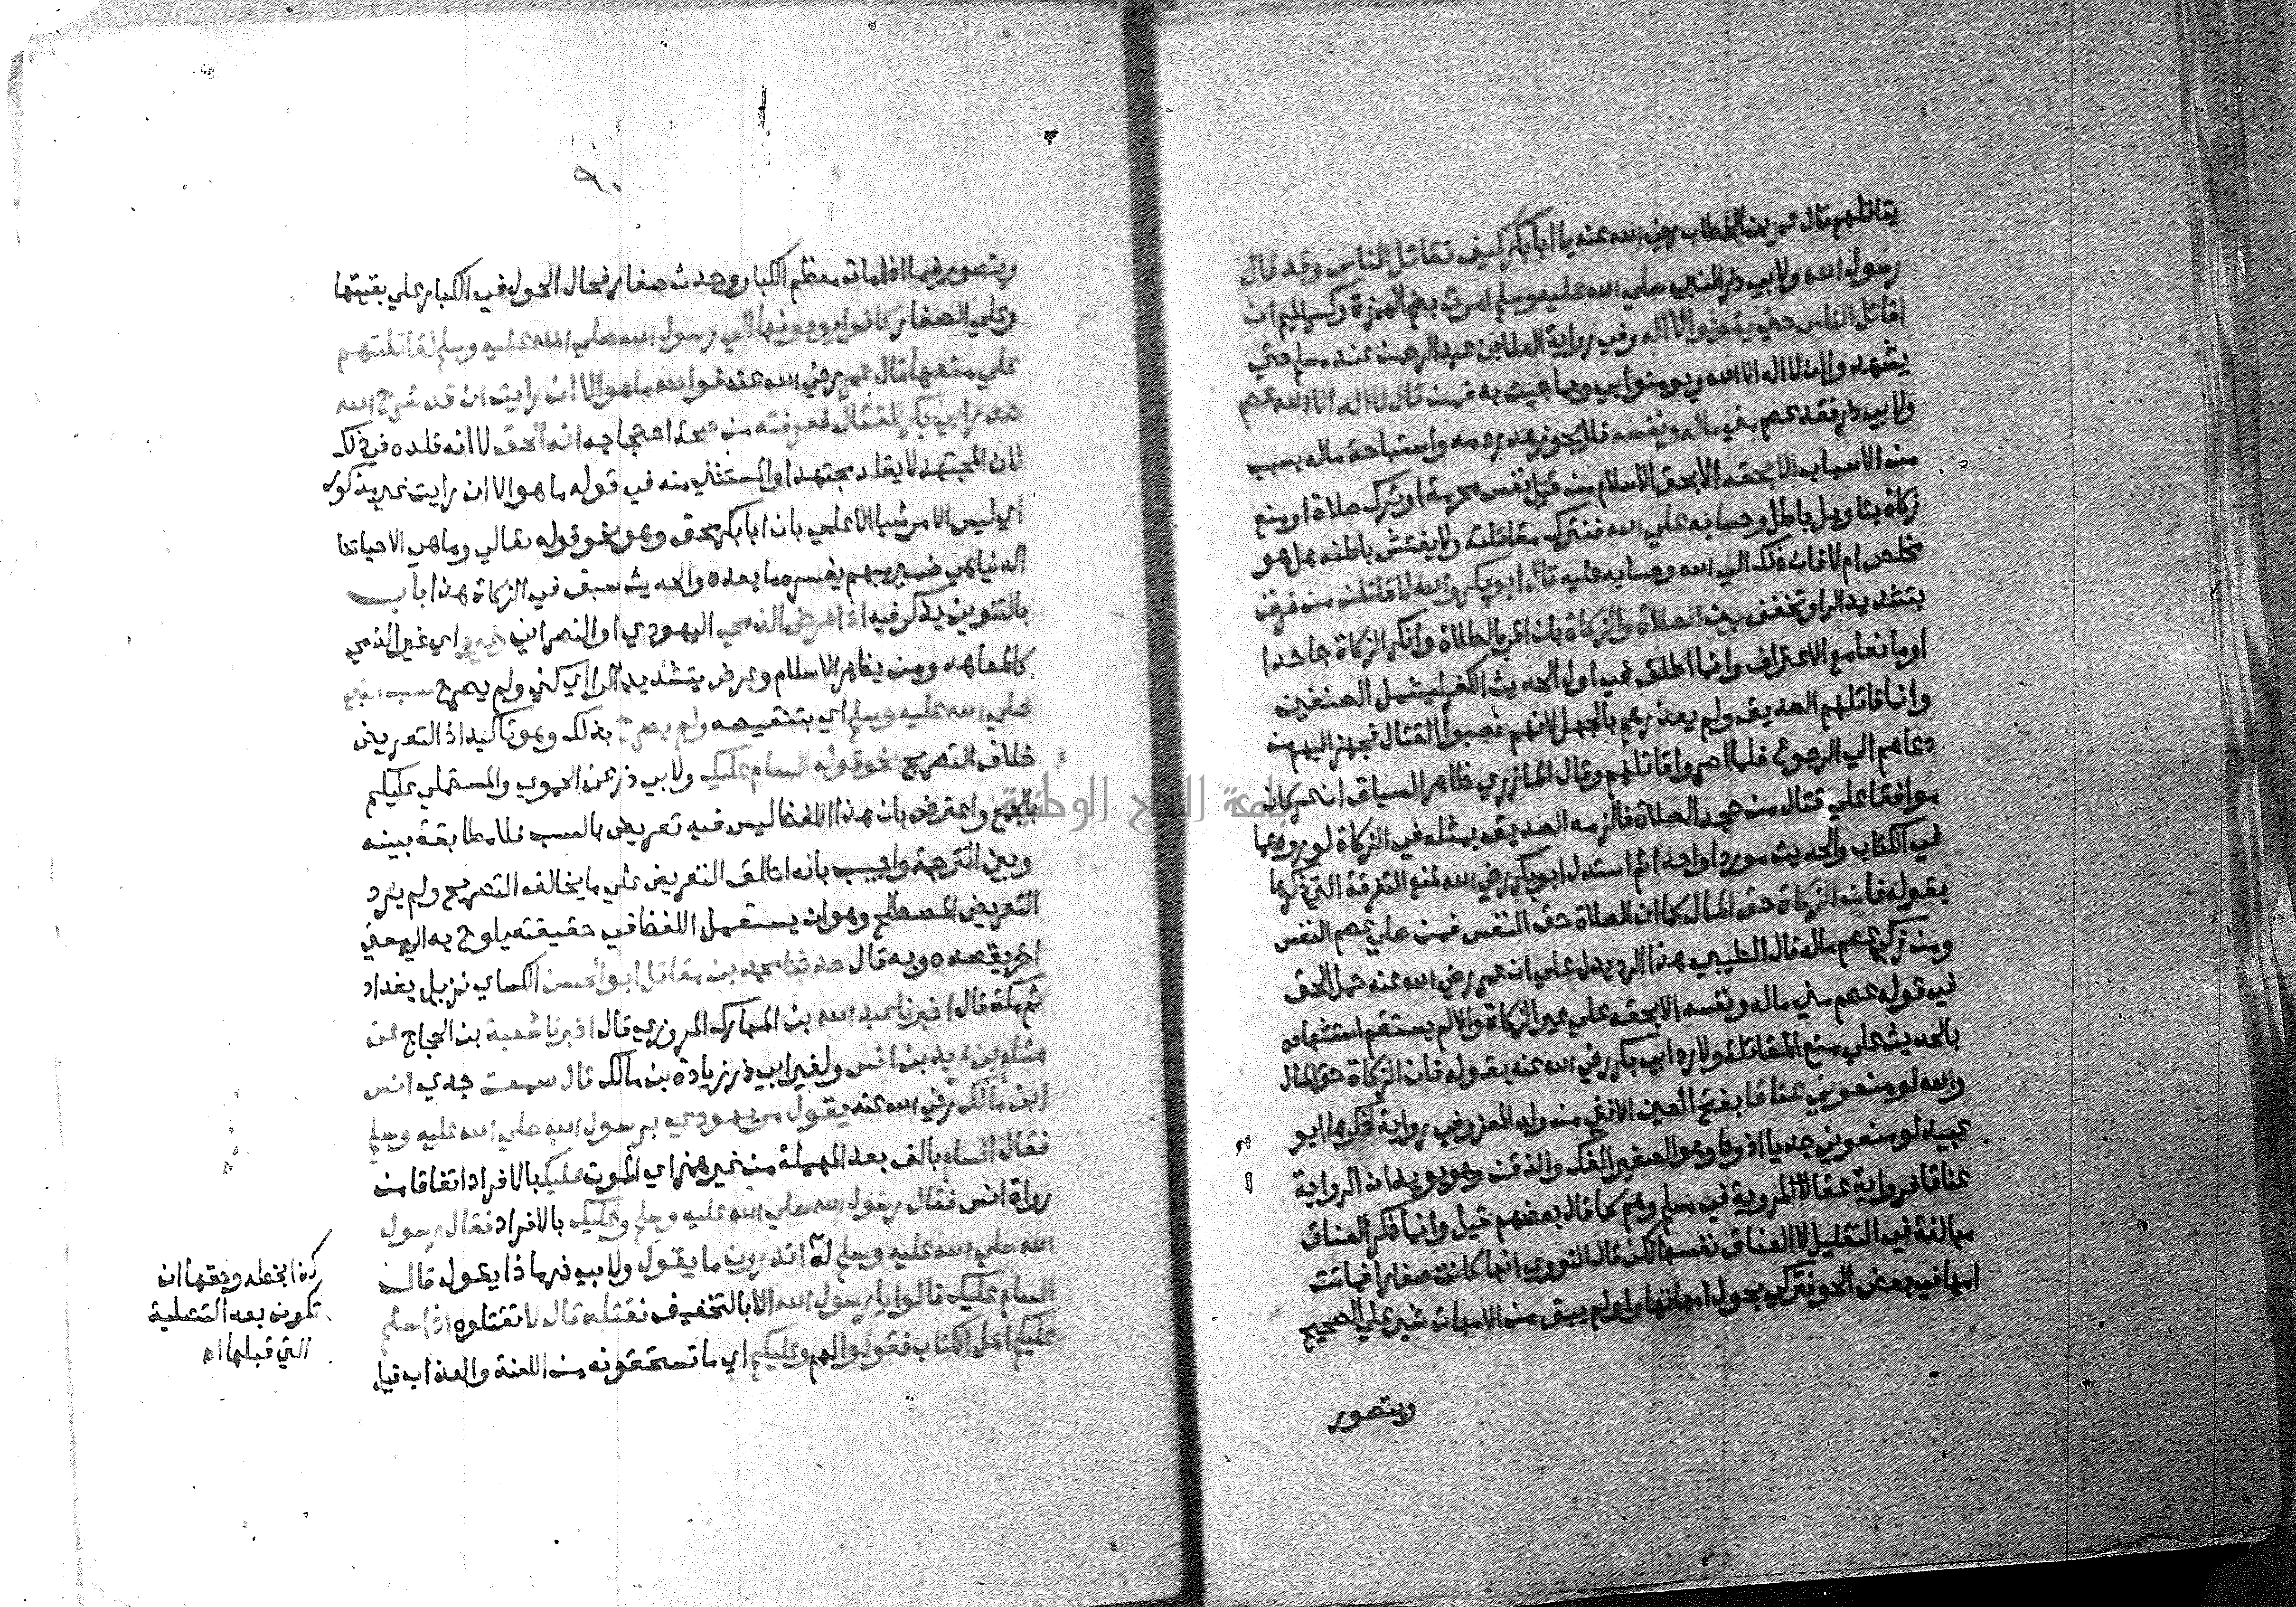 يقاتلهم قال عمر بن الخطاب رضي الله عنه يا ابا بكر كيف تقاتل الناس وقد قال
رسول الله ولابي ذر النبي صلي الله عليه وسلم امرت بضم الهمزة وكسر الميم ان
اقاتل الناس حتي يقولوا لا اله وفي رواية العلا بن عبد الرحمن عند مسلم حتي
يشهدوا ان لا اله الا الله ويومنوا بي وبما جيت به فمن قال لا اله الا الله عصم
ولابي ذر فقد عصم مني ماله ونفسه فلا يجوز هدر دمه واستباحة ماله بسبب
من الاسباب الا بحقه الا بحق الاسلام من قتل نفس محرمة او ترك صلاة او منع
زكاة بتاويل باطل وحسابه علي الله فنترك مقاتلته ولا يفتش باطنه هل هو
مخلص ام لا فان ذلك الي الله وحسابه عليه قال ابو بكر والله لاقاتلن من فرق
بتشديد الرا وتخفف بين الصلاة والزكاة بان اقر بالصلاة وانكر الزكاة جاحدا
او مانعا مع الاعتراف وانما اطلق في اول الحديث الكفر ليشمل الصنفين
وانما قاتلهم الصديق ولم يعذرهم بالجهل لانهم نصبوا القتال فجهز اليهم من
دعاهم الي الرجوع فلما اصروا قاتلهم وقال المازري ظاهر السياق ان عمر كان
موافقا علي قتال من جحد الصلاة فالزمه الصديق بمثله في الزكاة لورودهما
في الكتاب والحديث موردا واحدا ثم استدل ابو بكر رضي الله لمنع التفرقة التي ذكرها
بقوله فان الزكاة حق المال كما ان الصلاة حق النفس فمن صلي عصم النفس
ومن زكي عصم ماله قال الطيبي هذا الرد يدل علي ان عمر رضي الله عنه حمل الحق
في قوله عصم مني ماله ونفسه الا بحقه علي غير الزكاة والا لم يستقم استشهاده
بالحديث علي منع المقاتلة ولا رد ابي بكر رضي الله عنه بقوله فان الزكاة حق المال
والله لو منعوني عناقا بفتح العين الانثي من ولد المعز وفي رواية ذكرها ابو
عبيد لو منعوني جديا اذوط وهو الصغير الفك والذقن وهو يويد ان الرواية
عناقا فرواية عقالا المروية في مسلم وهم كما قال بعضهم قيل وانما ذكر العناق
مبالغة في التقليل لا العناق نفسها لكن قال النووي انها كانت صغارا فماتت
امها في بعض الحول فتزكي بحول امهاتها ولو لم يبق من الامهات شي علي الصحيح
ويتصور
٩٠
ويتصور فيما اذا مات معظم الكبار وحدث صغار فحال الحول في الكبار علي بقيتها
وعلي الصغار كانوا يودونها الي رسول الله صلي الله عليه وسلم لقاتلتهم
علي منعها قال عمر رضي الله عنه فوالله ما هو الا ان رايت ان قد شرح الله
صدر ابي بكر للقتال فعرفت من صحة احتجاجه انه الحق لا انه قلده في ذلك
لان المجتهد لا يقلد مجتهدا والمستثني منه في قوله ما هو الا ان رايت غير مذكور
اي ليس الامر شيا الا علمي بان ابا بكر محق وهو نحو قوله تعالي وما هي الا حياتنا
الدنيا هي ضمير مبهم يفسره ما بعده والحديث سبق في الزكاة هذا باب
بالتنوين يذكر فيه اذا عرض الذمي اليهودي او النصراني وغيره اي غير الذمي
كالمعاهد ومن يظهر الاسلام وعرض بتشديد الرا اي كني ولم يصرح بسب النبي
صلي الله عليه وسلم اي بتنقيصه ولم يصرح بذلك وهو تاكيد اذ التعريض
خلاف التصريح نحو قوله السام عليك ولابي ذر عن الحموي والمستملي عليكم
بالجمع واعترض بان هذا اللفظ ليس فيه تعريض بالسب فلا مطابقة بينه
وبين الترجمة واجيب بانه اطلق التعريض علي ما يخالف التصريح ولم يرد
التعريض المصطلح وهو ان يستعمل اللفظ في حقيقته يلوح به الي معني
اخر يقصده وبه قال حدثنا محمد بن مقاتل ابو الحسن الكساي نزيل بغداد
ثم مكة قال اخبرنا عبد الله بن المبارك المروزي قال اخبرنا شعبة بن الحجاج عن
هشام بن زيد بن انس ولغير ابي ذر زيادة بن مالك قال سمعت جدي انس
ابن مالك رضي الله عنه يقول مر يهودي برسول الله صلي الله عليه وسلم
فقال السام بالف بعد المهملة من غير همز اي الموت عليك بالافراد اتفاقا من
رواة انس فقال رسول الله صلي الله عليه وسلم وعليك بالافراد فقال رسول
الله صلي الله عليه وسلم له اتدرون ما يقول ولابي ذر ماذا يقول قال
السام عليك قالوا يا رسول الله الا بالتخفيف نقتله قال لا تقتلوه اذا سلم
عليكم اهل الكتاب فقولوا لهم وعليكم اي ما تستحقونه من اللعنة والعذاب قيل
كذا بخطه وحقها ان
تكون بعد التصلية
التي قبلها اه
جامعة النجاح الوطنية